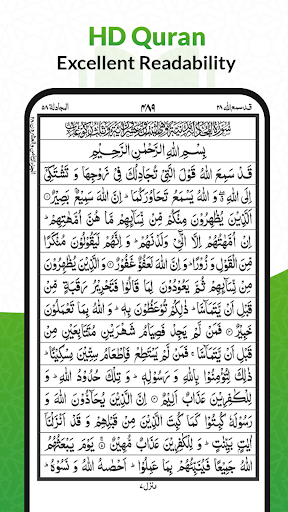 HD Quran
Excellent Readability
المجادلة ٥٨
٤٨٩
قد سمع الله ٢٨
بِسْمِ اللهِ الرَّحْمٰنِ الرَّحِيْمِ
قَدْ سَمِعَ اللهُ قَوْلَ الَّتِيْ تُجَادِلُكَ فِيْ زَوْجِهَا وَ تَشْتَكِيْٓ
اِلَى اللهِ ۖ وَ اللهُ يَسْمَعُ تَحَاوُرَكُمَا ؕ اِنَّ اللهَ سَمِيْعٌۢ بَصِيْرٌ ۝
اَلَّذِيْنَ يُظٰهِرُوْنَ مِنْكُمْ مِّنْ نِّسَآئِهِمْ مَّا هُنَّ اُمَّهٰتِهِمْ ؕ
اِنْ اُمَّهٰتُهُمْ اِلَّا الّٰٓـِٔيْ وَلَدْنَهُمْ ؕ وَ اِنَّهُمْ لَيَقُوْلُوْنَ مُنْكَرًا
مِّنَ الْقَوْلِ وَ زُوْرًا ؕ وَ اِنَّ اللهَ لَعَفُوٌّ غَفُوْرٌ ۝ وَ الَّذِيْنَ يُظٰهِرُوْنَ
مِنْ نِّسَآئِهِمْ ثُمَّ يَعُوْدُوْنَ لِمَا قَالُوْا فَتَحْرِيْرُ رَقَبَةٍ مِّنْ
قَبْلِ اَنْ يَّتَمَآسَّا ؕ ذٰلِكُمْ تُوْعَظُوْنَ بِهٖ ؕ وَ اللهُ بِمَا تَعْمَلُوْنَ
خَبِيْرٌ ۝ فَمَنْ لَّمْ يَجِدْ فَصِيَامُ شَهْرَيْنِ مُتَتَابِعَيْنِ مِنْ
قَبْلِ اَنْ يَّتَمَآسَّا ۚ فَمَنْ لَّمْ يَسْتَطِعْ فَاِطْعَامُ سِتِّيْنَ مِسْكِيْنًا ؕ
ذٰلِكَ لِتُؤْمِنُوْا بِاللهِ وَ رَسُوْلِهٖ ؕ وَ تِلْكَ حُدُوْدُ اللهِ ؕ وَ
لِلْكٰفِرِيْنَ عَذَابٌ اَلِيْمٌ ۝ اِنَّ الَّذِيْنَ يُحَآدُّوْنَ اللهَ وَ
رَسُوْلَهٗ كُبِتُوْا كَمَا كُبِتَ الَّذِيْنَ مِنْ قَبْلِهِمْ وَ قَدْ اَنْزَلْنَآ
اٰيٰتٍۭ بَيِّنٰتٍ ؕ وَ لِلْكٰفِرِيْنَ عَذَابٌ مُّهِيْنٌ ۝ يَوْمَ يَبْعَثُهُمُ
اللهُ جَمِيْعًا فَيُنَبِّئُهُمْ بِمَا عَمِلُوْا ؕ اَحْصٰىهُ اللهُ وَ نَسُوْهُ ؕ
منزل ٧